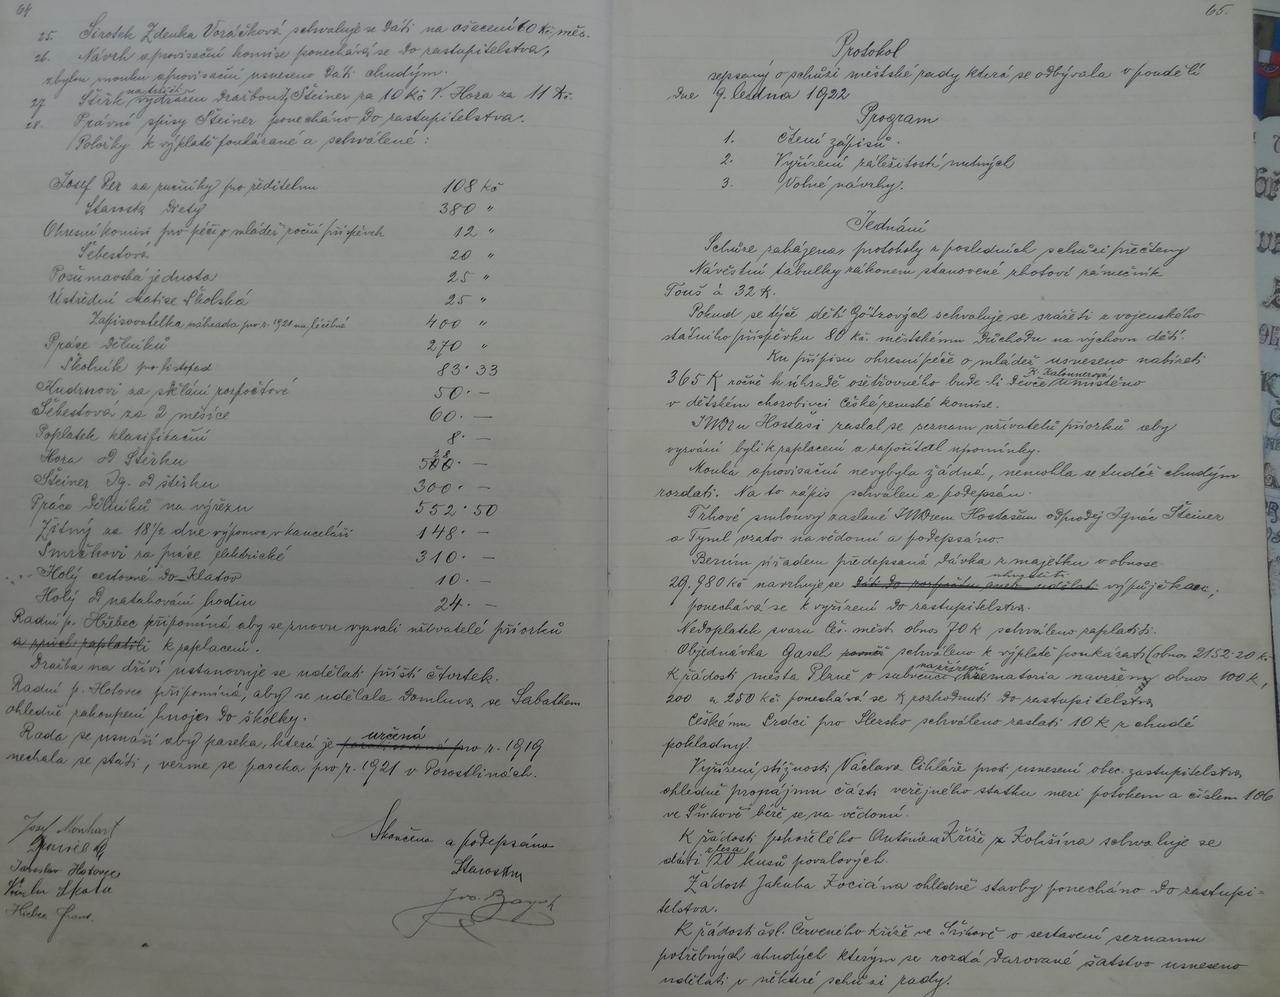 64
25. Sirotek Zdenka Voráčková schvaluje se dáti na ošacení 60 Kč měs.
26. Návrh aprovisační komise ponechává se do zastupitelstva,
zbylou mouku aprovisační usneseno dáti chudým.
27. Štěrk na vydrážen dražbou Šteiner za 10 Kč V. Hora za 11 Kč.
28. Právní spisy Šteiner ponecháno do zastupitelstva.
Položky k výplatě poukázané a schválené :
Josef Per za ručníky pro ředitelnu 108 Kč
Starosta diety 380 "
Okresní komisi pro péči o mládež roční příspěvek 12 "
Šebestová 20 "
Pošumavská jednota 25 "
Ústřední Matise Školská 25 "
Zapisovatelka náhrada pro r. 1921 na 400 "
Práce dělníků 270 "
Školník pro listopad 83·33
Kudrnovi za sklání rozpočtové 50·—
Šebestová za 2 měsíce 60·—
Poplatek klasifikační 8·—
Hora od Štěrku —
Šteiner Ig. od štěrku 300·—
Práce dělníků na výřezu 552·50
Žitný za 18½ dne výpomoc v kanceláři 148·—
Smrčkovi za práce elektrické 310·—
Holý cestovné do Klatov 10·—
Holý od natahování hodin 24·—
Radní p. Hřebec připomíná aby se znovu vyzvali uživatelé příorků
k zaplacení.
Dražba na dříví ustanovuje se udělati příští čtvrtek.
Radní p. Hotovec připomíná, aby se udělala domluva se Sabathem
ohledně zakoupení hnoje do školky.
Rada se usnáší aby paseka, která je určená pro r. 1919
nechala se státi, vezme se paseka pro r. 1921 v Porostlinách.
Skončeno a podepsáno
Starosta
Josef Monhart
Jaroslav Hotovec
Skala
65.
Protokol
sepsaný o schůzi městské rady která se odbývala v pondělí
dne 9. ledna 1922
Program
1. Čtení zápisů.
2. Vyřízení záležitostí nutných
3. Volné návrhy.
Jednání
Schůze zahájena, protokoly z posledních schůzí přečteny
Návěstní tabulky zákonem stanovené zhotoví zámečník
Touš à 32 K.
Pokud se týče dětí schvaluje se srážeti z vojenského
státního příspěvku 80 Kč. městskému důchodu na výchovu dětí.
Ku přípisu okresní péče o mládež usneseno nabízeti
365 K ročně k úhradě ošetřovného bude-li děvče K. umístěno
v dětském chorobinci České zemské komise.
JUDru Hostaši zaslal se seznam uživatelů příorků aby
vyzváni byli k zaplacení a započítal upomínky.
Mouka aprovisační nevybyla žádná, nemohla se tudíž chudým
rozdati. Na to zápis schválen a podepsán.
Trhové smlouvy zaslané JUDrem Hostašem odprodej Ignác Šteiner
a Tyml vzato na vědomí a podepsáno.
Berním úřadem předepsaná dávka z majetku v obnose
29.980 Kč navrhuje se dáti do rozpočtu aneb udělati uhraditi výpůjčkou,
ponechává se k vyřízení do zastupitelstva.
Nedoplatek svazu čes. měst. obnos 70 K schváleno zaplatiti.
Objednávka Gasch schváleno k výplatě poukázati (obnos 2152·20 K.
K žádosti města Plzně o subvenci na zřízení krematoria navržený obnos 100 K,
200 a 250 Kč ponechává se k rozhodnutí do zastupitelstva
Českému Srdci pro Slezsko schváleno zaslati 10 K z chudé
pokladny.
Vyřízení stížnosti Václava Cihláře prot. usnesení obec. zastupitelstva
ohledně propůjmu části veřejného statku mezi potokem a číslem 106
ve Švihově béře se na vědomí.
K žádosti pohořelého Antonína Kříže z Kokšína schvaluje se
dáti z lesa 20 kusů povalových.
Žádost Jakuba Kociána ohledně stavby ponecháno do zastupi-
telstva.
K žádosti čsl. Červeného kříže ve Švihově o sestavení seznamu
potřebných chudých kterým se rozdá darované šatstvo usneseno
udělati v některé schůzi rady.